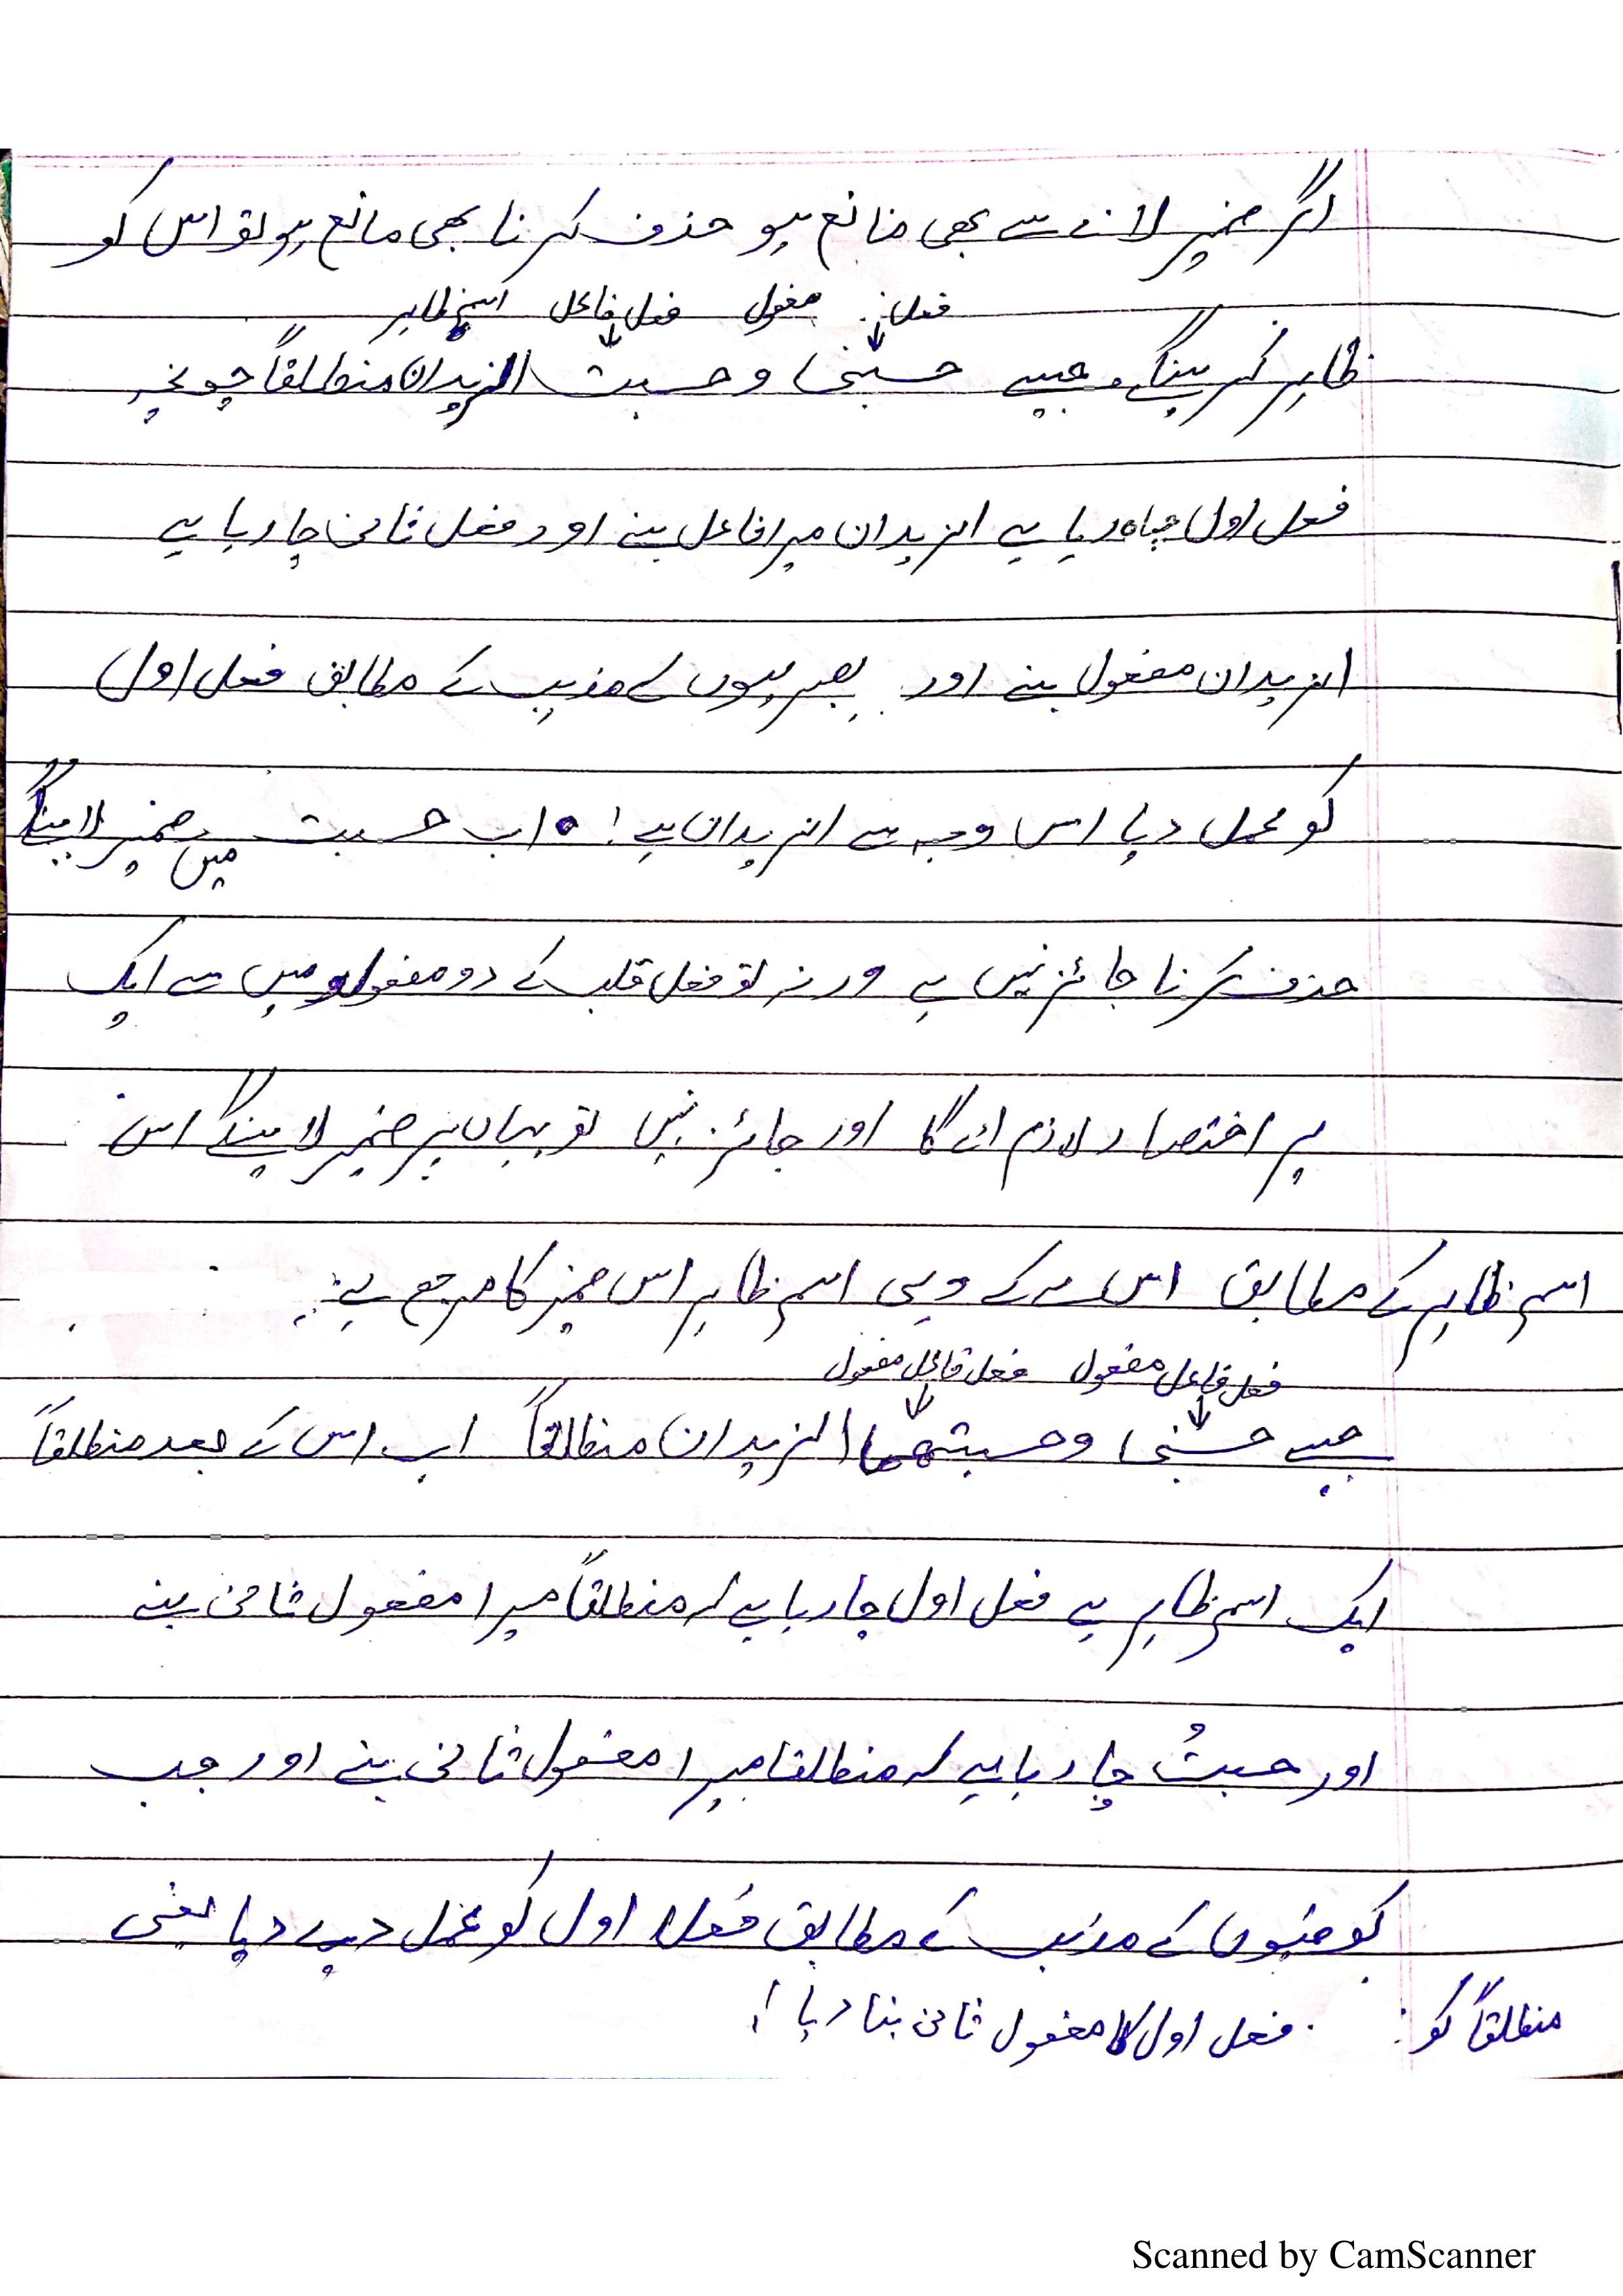 اگر ضمیر لانے سے بھی مانع ہو حذف کرنا بھی مانع ہو تو اس کو
فعل مفعول فعل فاعل اسم ظاہر
ظاہر کرینگے جیسے حسبنی و حسبت الزیدان منطلقاً چونکہ
فعل اول چاہ رہا ہے الزیدان میرا فاعل بنے اور فعل ثانی چا رہا ہے
الزیدان مفعول بنے اور بصریوں کے مذہب کے مطابق فعل اول
کو عمل دیا اس وجہ سے الزیدان ہے! اب حسبت میں ضمیر لاینگے
حذف کرنا جائز نہیں ہے ورنہ تو فعل قلب کے دو مفعولو میں سے ایک
پر اختصار لازم ائے گا اور جائز نہیں تو یہاں پر ضمیر لاینگے اس
اسم ظاہر کے مطابق اس لے کے وہی اسم ظاہر اس ضمیر کا مرجع ہے:
فعل فاعل مفعول فعل فاعل مفعول
جیسے حسبنی و حسبتھما الزیدان منطلقاً اب اس کے بعد منطلقاً
ایک اسم ظاہر ہے فعل اول چا رہا ہے کہ منطلقاً میرا مفعول ثانی بنے
اور حسبتُ چا رہا ہے کہ منطلقا میرا مفعول ثانی بنے اور جب
کوفیوں کے مذہب کے مطابق فعل اول کو عمل دے دیا یعنی
منطلقاً کو: فعل اول کا مفعول ثانی بنا دیا!
Scanned by CamScanner